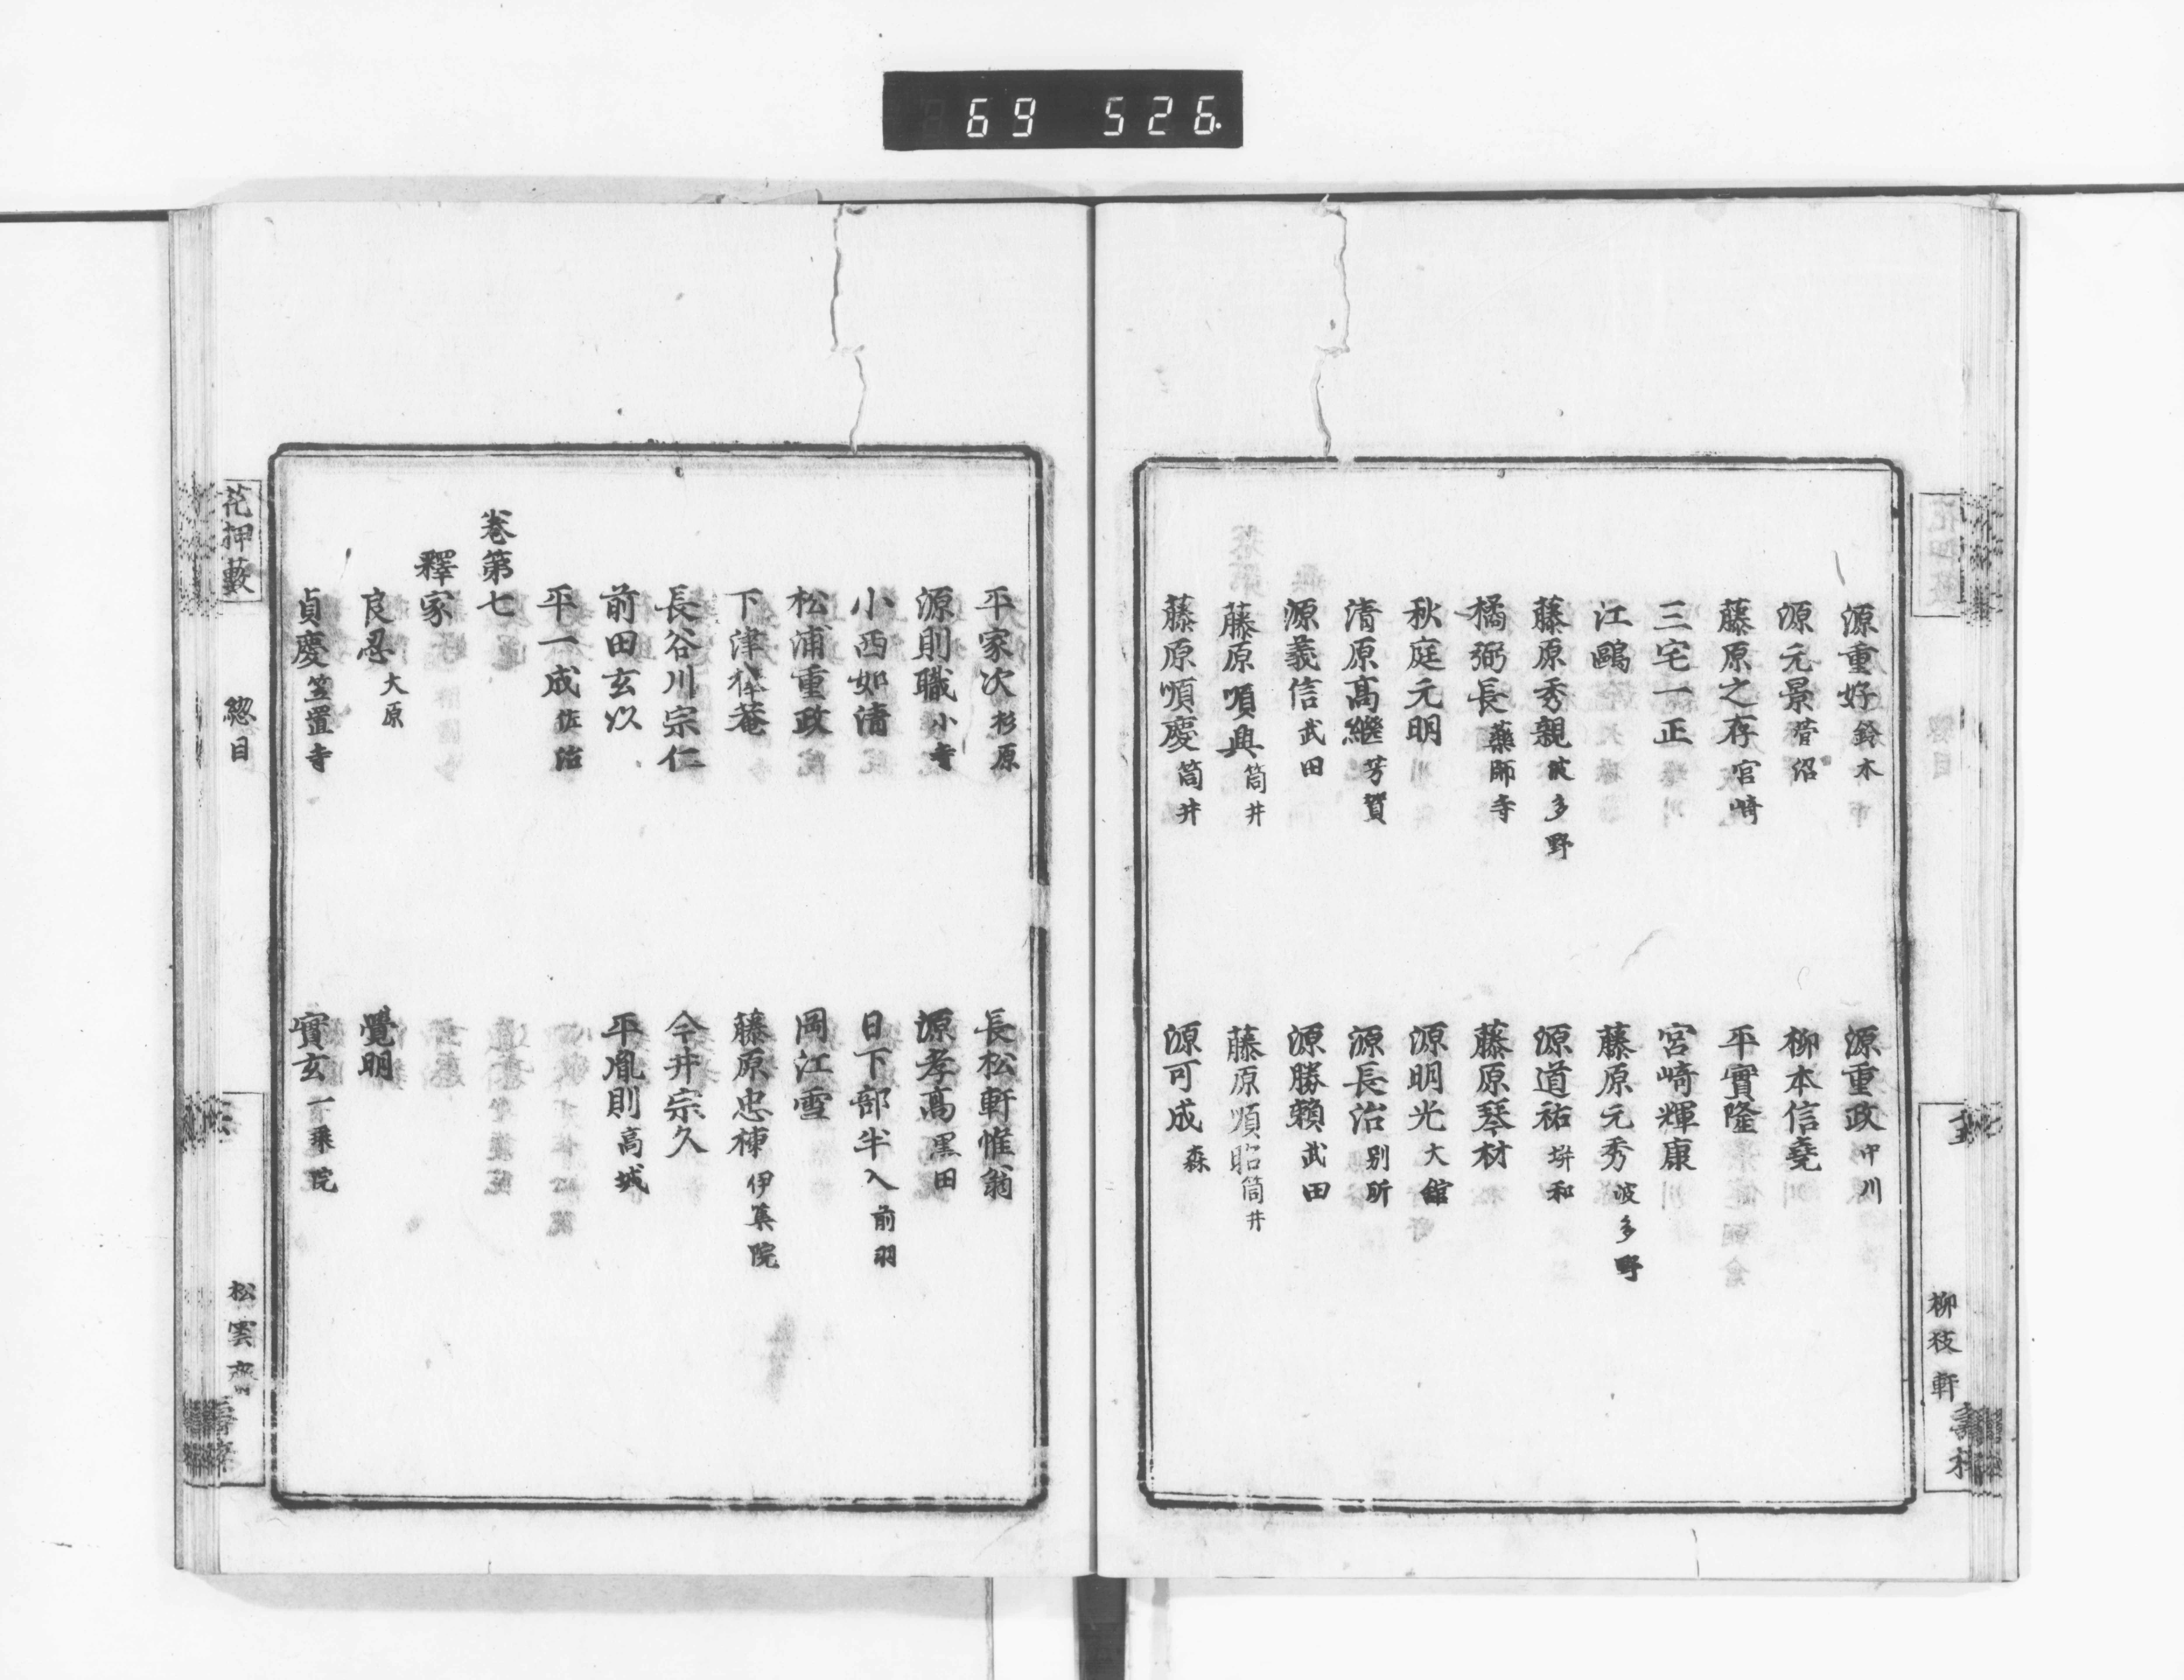 69 526
源重好 鈴木
源重政 中川
源元景 菅沼
柳本信堯
藤原之存 宮崎
平實隆
三宅一正
宮崎輝康
江鷗
藤原元秀 波多野
藤原秀親 波多野
源道祐 垪和
橘弼長 藥師寺
藤原琴材
秋庭元明
源明光 大館
清原高繼 芳賀
源長治 別所
源義信 武田
源勝賴 武田
藤原順興 筒井
藤原順昭 筒井
藤原順慶 筒井
源可成 森
柳枝軒
平家次 杉原
長松軒惟翁
源則職 小寺
源孝高 黒田
小西如清
日下部半入 前羽
松浦重政
岡江雪
下津棒菴
藤原忠棟 伊集院
長谷川宗仁
今井宗久
前田玄以
平胤則 高城
平一成 佐治
卷第七
釋家
良忍 大原
覺明
貞慶 笠置寺
實玄 一乘院
花押藪
緫目
松雲齋